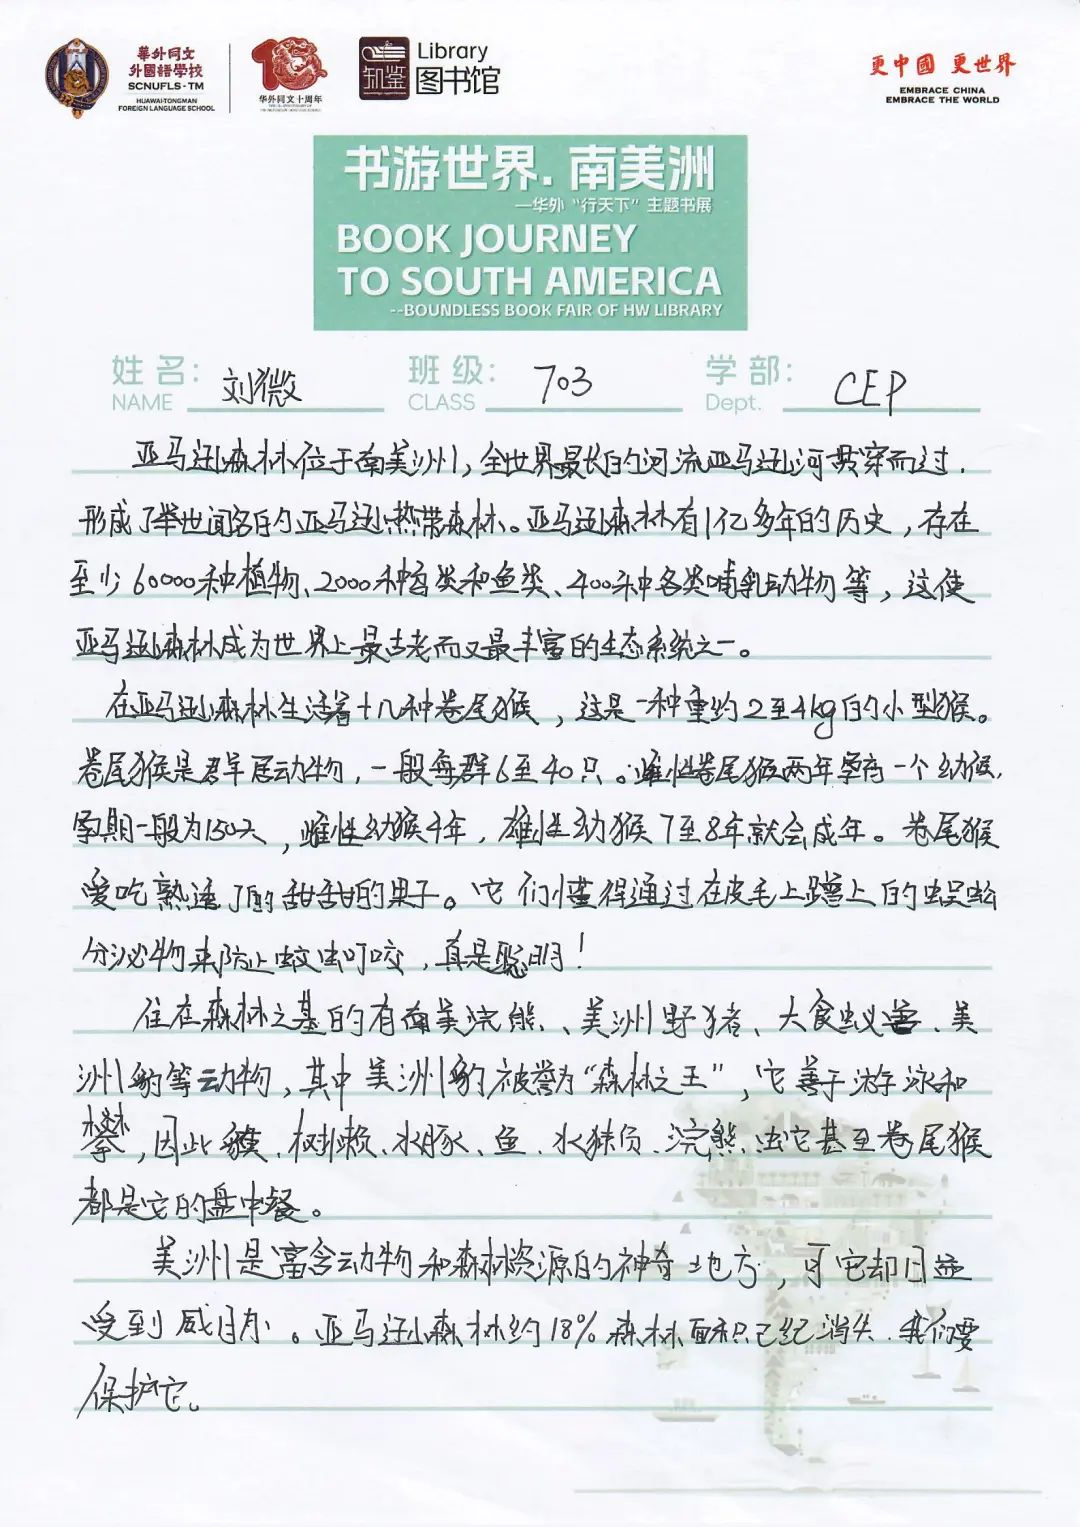 華外同文
外國語學校
SCNUFLS·TM
HUAWAI-TONGMAN
FOREIGN LANGUAGE SCHOOL
华外同文十周年
知鉴
Library
图书馆
更中國 更世界
EMBRACE CHINA
EMBRACE THE WORLD
书游世界.南美洲
—华外“行天下”主题书展
BOOK JOURNEY
TO SOUTH AMERICA
--BOUNDLESS BOOK FAIR OF HW LIBRARY
姓名: 刘微 班级: 703 学部: CEP
NAME CLASS Dept.
亚马逊森林位于南美洲,全世界最长的河流亚马逊河贯穿而过.
形成了举世闻名的亚马逊热带森林。亚马逊森林有1亿多年的历史,存在
至少60000种植物、2000种鸟类和鱼类、400种各类哺乳动物等,这使
亚马逊森林成为世界上最古老而又最丰富的生态系统之一。
在亚马逊森林生活着十几种卷尾猴,这是一种重约2至4kg的小型猴。
卷尾猴是群居动物,一般每群6至40只。雌性卷尾猴两年孕育一个幼猴,
孕期一般为150天,雌性幼猴4年,雄性幼猴7至8年就会成年。卷尾猴
爱吃熟透了的甜甜的果子。它们懂得通过在皮毛上蹭上的蜈蚣
分泌物来防止蚊虫叮咬,真是聪明!
住在森林之基的有南美浣熊、美洲野猪、大食蚁兽、美
洲豹等动物,其中美洲豹被誉为“森林之王”,它善于游泳和
攀,因此貘、树懒、水豚、鱼、水獭、浣熊、甚至卷尾猴
都是它的盘中餐。
美洲是富含动物和森林资源的神奇地方,可它却日益
受到威胁。亚马逊森林约18%森林面积已经消失.我们要
保护它。